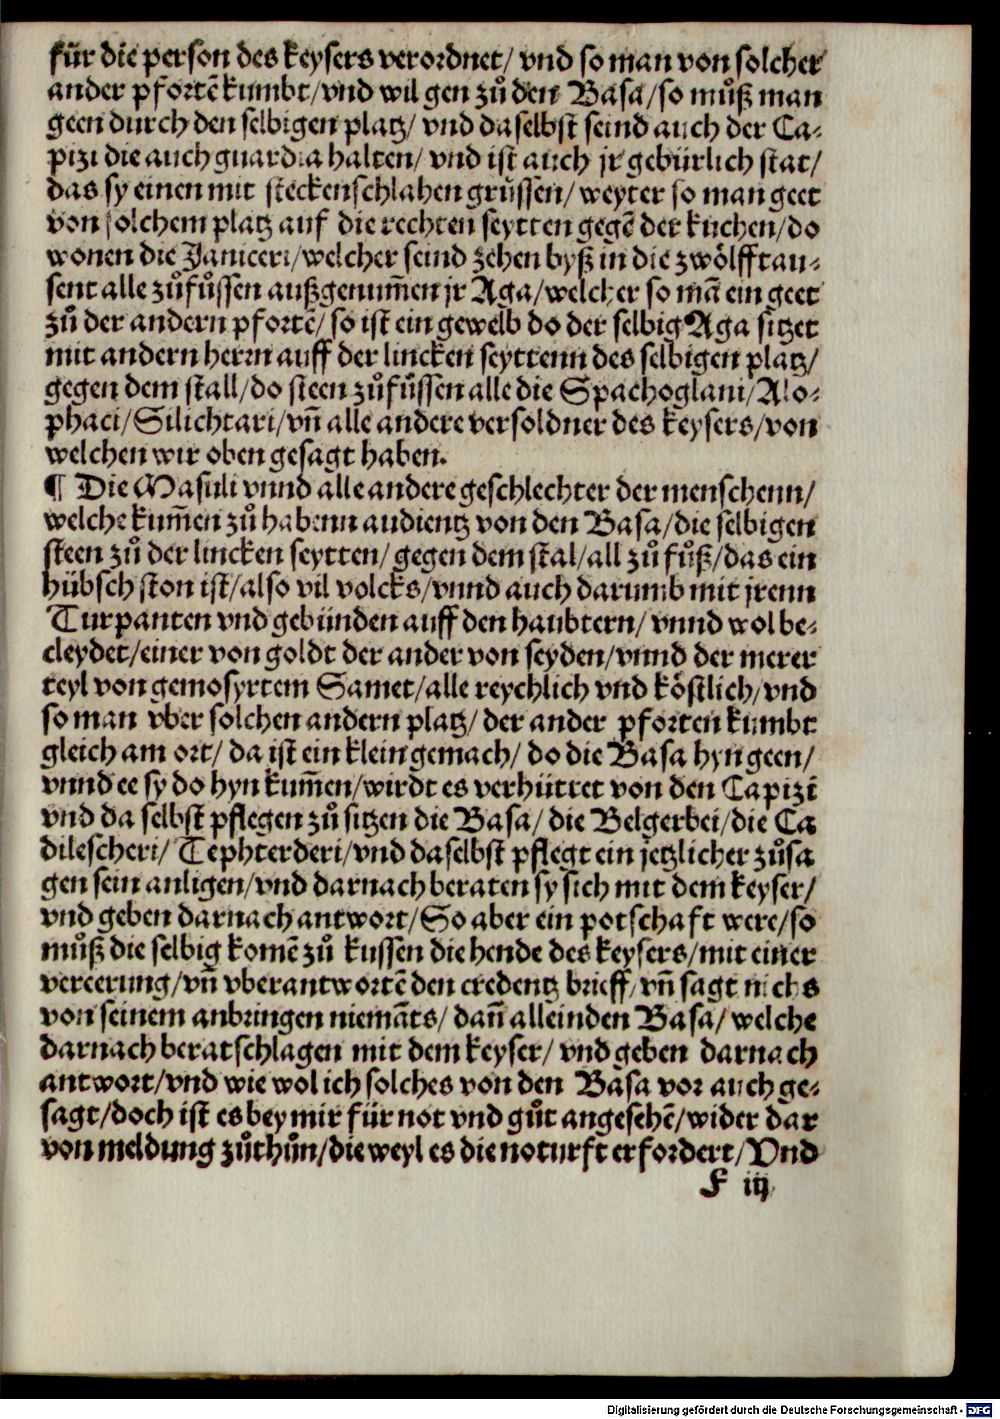 für die person des keysers verordnet/ vnd so man von solcher
ander pfortē kumbt/vnd wil gen zů den Basa/so můß man
geen durch den selbigen platz/ vnd daselbst seind auch der Ca-
pizi die auch guardia halten/ vnd ist auch jr gebürlich stat/
das sy einen mit steckenschlahen grüssen/ weyter so man geet
von solchem platz auf die rechten seytten gegē der kuchen/do
wonen die Janiceri/welcher seind zehen byß in die zwölfftau-
sent alle zůfůssen außgenum̄en jr Aga/welcher so mā ein geet
zů der andern pfortē/ so ist ein gewelb do der selbig Aga sitzet
mit andern herrn auff der lincken seyttenn des selbigen platz/
gegen dem stall/do steen zůfüssen alle die Spachoglani/Alo-
phaci/Silichtari/vn̄ alle andere versoldner des keysers/von
welchen wir oben gesagt haben.
¶ Die Masuli vnnd alle andere geschlechter der menschenn/
welche kum̄en zů habenn audientz von den Basa/die selbigen
steen zů der lincken seytten/ gegen dem stal/all zů fůß/das ein
hübsch ston ist/also vil volcks/vnnd auch darumb mit jrenn
Turpanten vnd gebünden auff den haubtern/ vnnd wol be-
cleydet/einer von goldt der ander von seyden/vnnd der merer
teyl von gemosyrtem Samet/alle reychlich vnd köstlich/vnd
so man vber solchen andern platz/ der ander pforten kumbt
gleich am ort/ da ist ein klein gemach/ do die Basa hyn geen/
vnnd ee sy do hyn kum̄en/wirdt es verhüttet von den Capizi
vnd da selbst pflegen zů sitzen die Basa/ die Belgerbei/die Ca
dilescheri/ Tephterderi/vnd daselbst pflegt ein jetzlicher zůsa
gen sein anligen/vnd darnach beraten sy sich mit dem keyser/
vnd geben darnach antwort/So aber ein potschaft were/so
můß die selbig komē zů kussen die hende des keysers/mit einer
vereerung/vn̄ vberantwortē den credentz brieff/vn̄ sagt nichs
von seinem anbringen niemāts/ dan̄ allein den Basa/ welche
darnach beratschlagen mit dem keyser/ vnd geben darnach
antwort/vnd wie wol ich solches von den Basa vor auch ge-
sagt/doch ist es bey mir für not vnd gůt angesehē/wider dar
von meldung zůthůn/die weyl es die noturft erfordert/Vnd
F iij
Digitalisierung gefördert durch die Deutsche Forschungsgemeinschaft - DFG